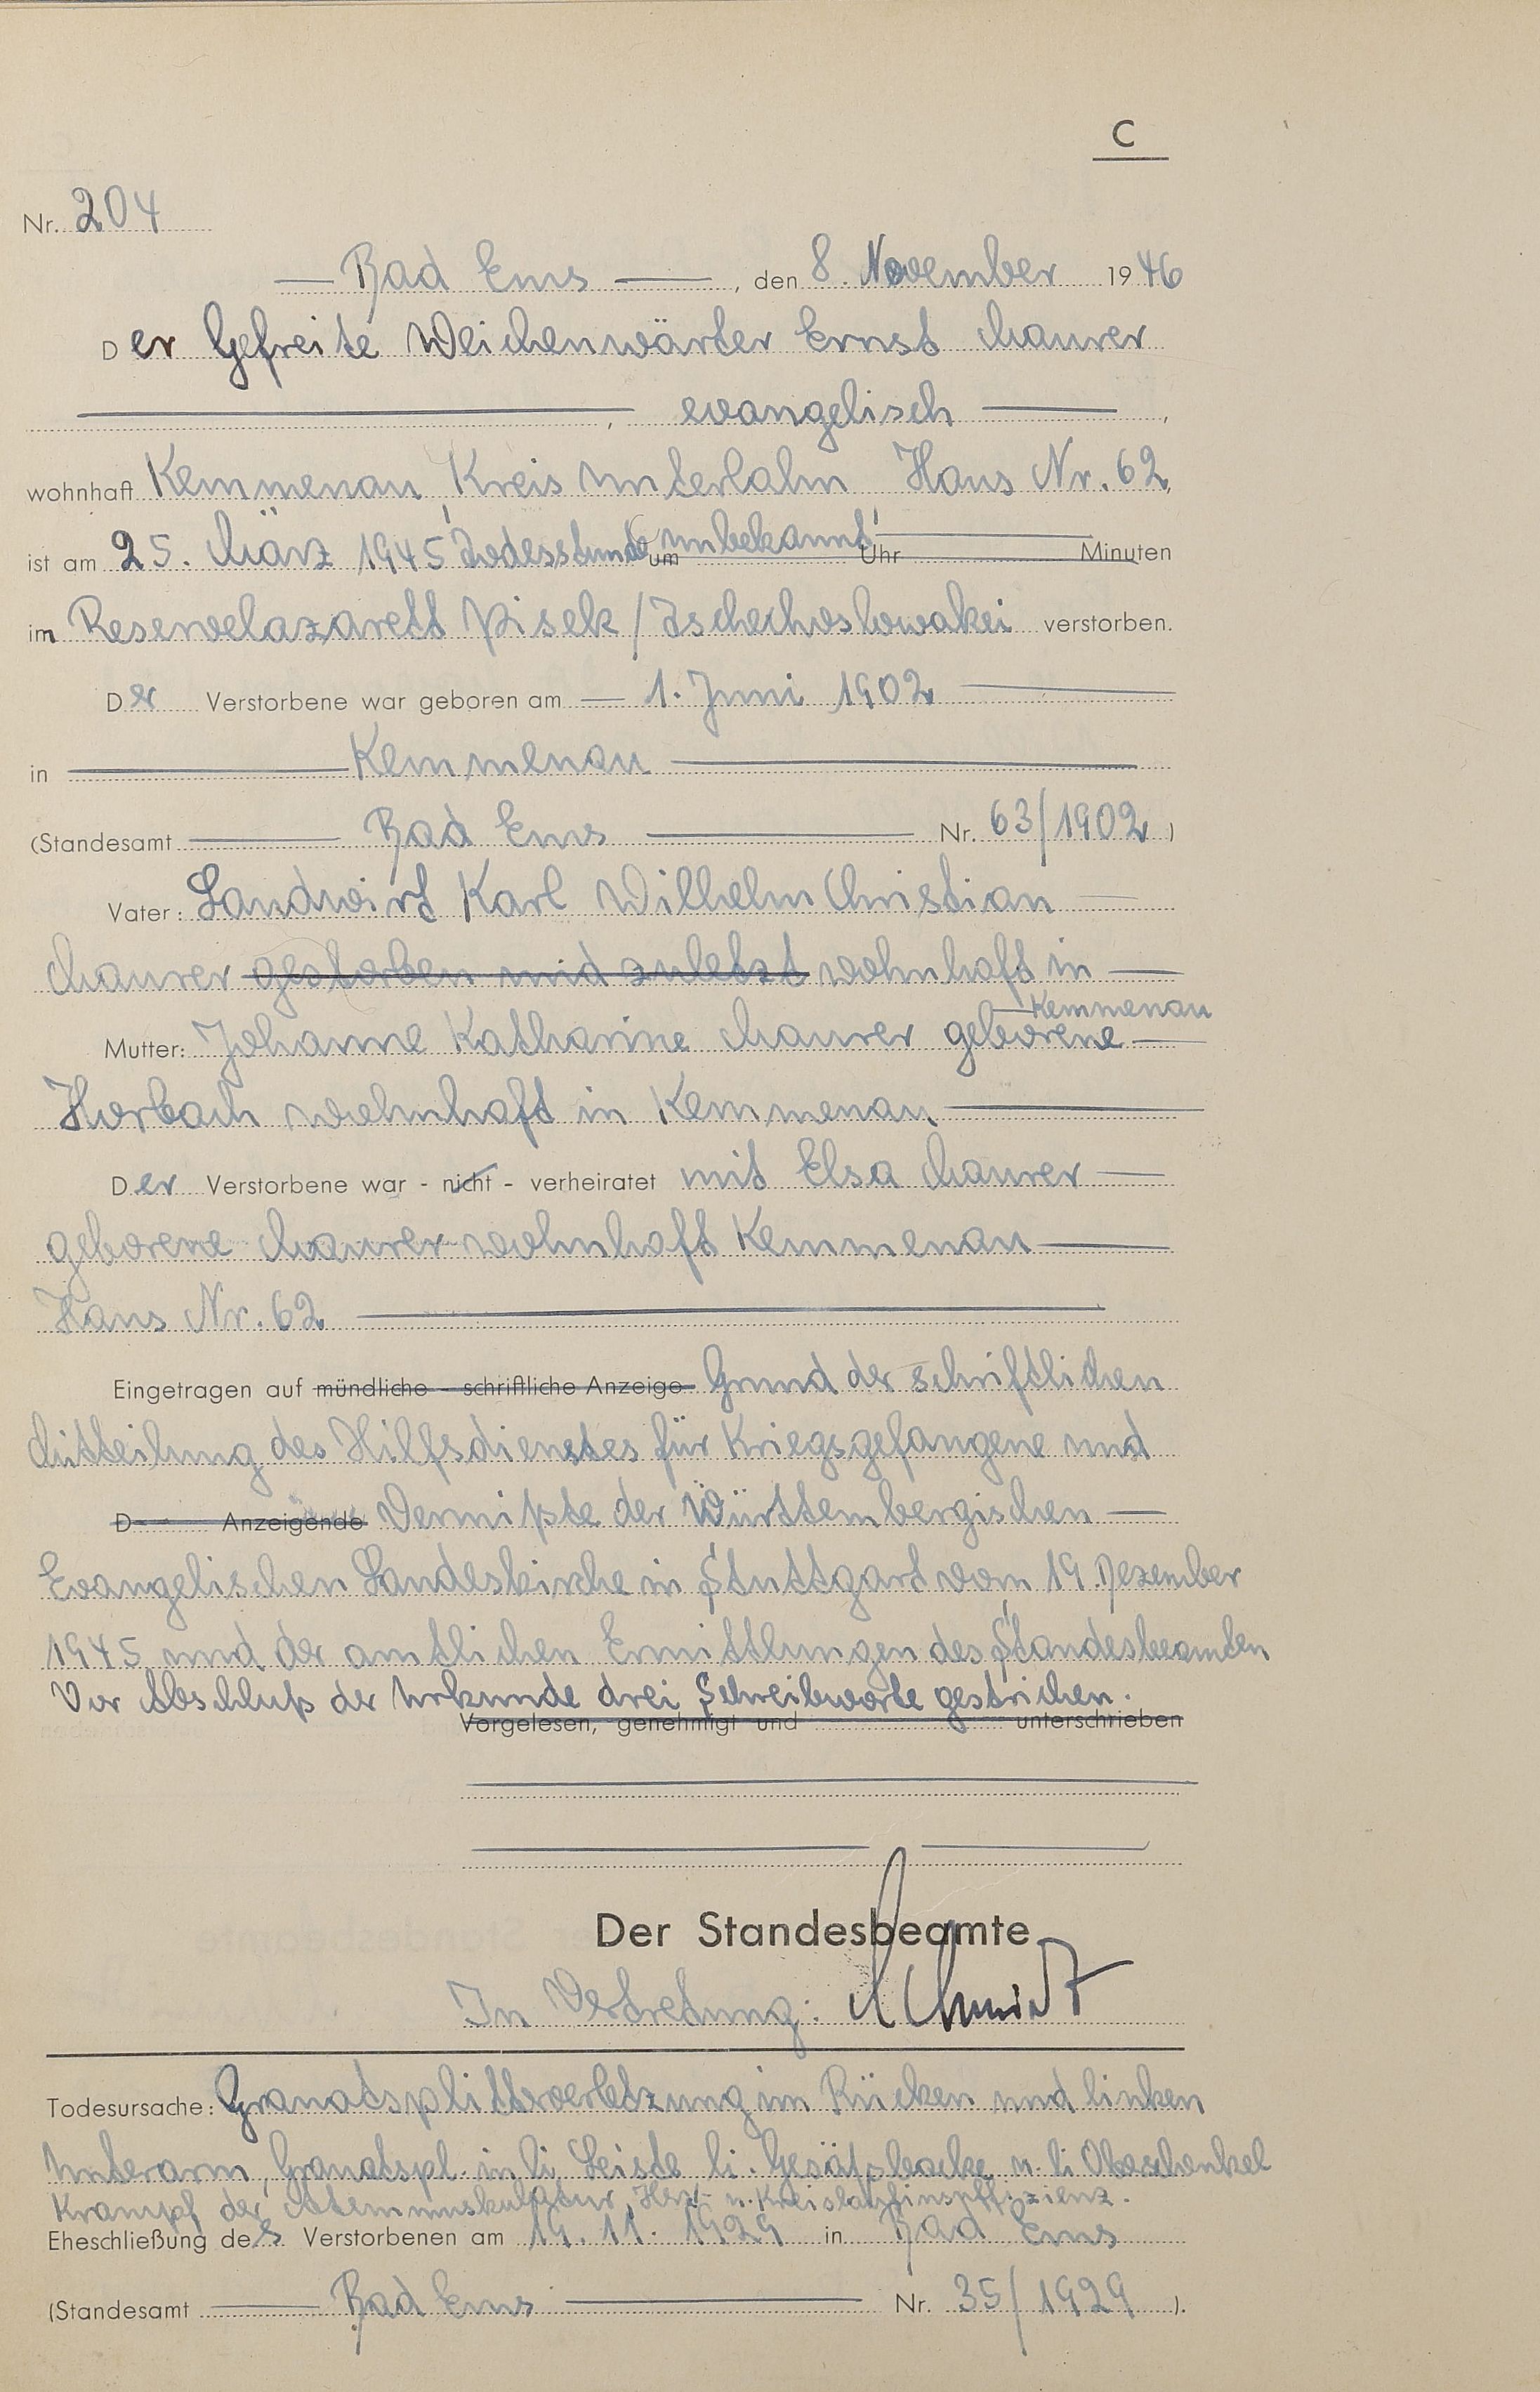 C
Nr. 204
Bad Ems, den 8. November 1946
Der Gefreite Weichenwärter Ernst Maurer
, evangelisch ,
wohnhaft Kemmenau, Kreis Unterlahn Haus Nr. 62,
ist am 25. März 1945 Todesstunde um unbekannt Uhr Minuten
im Reservelazarett Pisek/Tschechoslowakei verstorben.
Der Verstorbene war geboren am 1. Juni 1902
in Kemmenau
(Standesamt Bad Ems Nr. 63/1902)
Vater: Landwirt Karl Wilhelm Christian
Maurer gestorben und zuletzt wohnhaft in
Kemmenau
Mutter: Johanne Katharine Maurer geborene
Horbach wohnhaft in Kemmenau
Der Verstorbene war - nicht - verheiratet mit Elsa Maurer
geborene Maurer wohnhaft Kemmenau
Haus Nr. 62
Eingetragen auf mündliche - schriftliche Anzeige Grund der schriftlichen
Mitteilung des Hilfsdienstes für Kriegsgefangene und
D Anzeigende Vermißte der Württembergischen
Evangelischen Landeskirche in Stuttgart vom 19. Dezember
1945 und der amtlichen Ermittlungen des Standesbeamten
Vor Abschluß der Urkunde drei Schreibworte gestrichen.
Vorgelesen, genehmigt und unterschrieben
Der Standesbeamte
In Vertretung: Schmidt
Todesursache: Granatsplitterverletzung im Rücken und linken
Unterarm, Granatspl. in li. Leiste li. Gesäßbacke u. li Oberschenkel
Krampf der Atemmuskulatur, Herz- u. Kreislaufinsuffizienz.
Eheschließung des Verstorbenen am 19. 11. 1929 in Bad Ems
(Standesamt Bad Ems Nr. 35/1929).